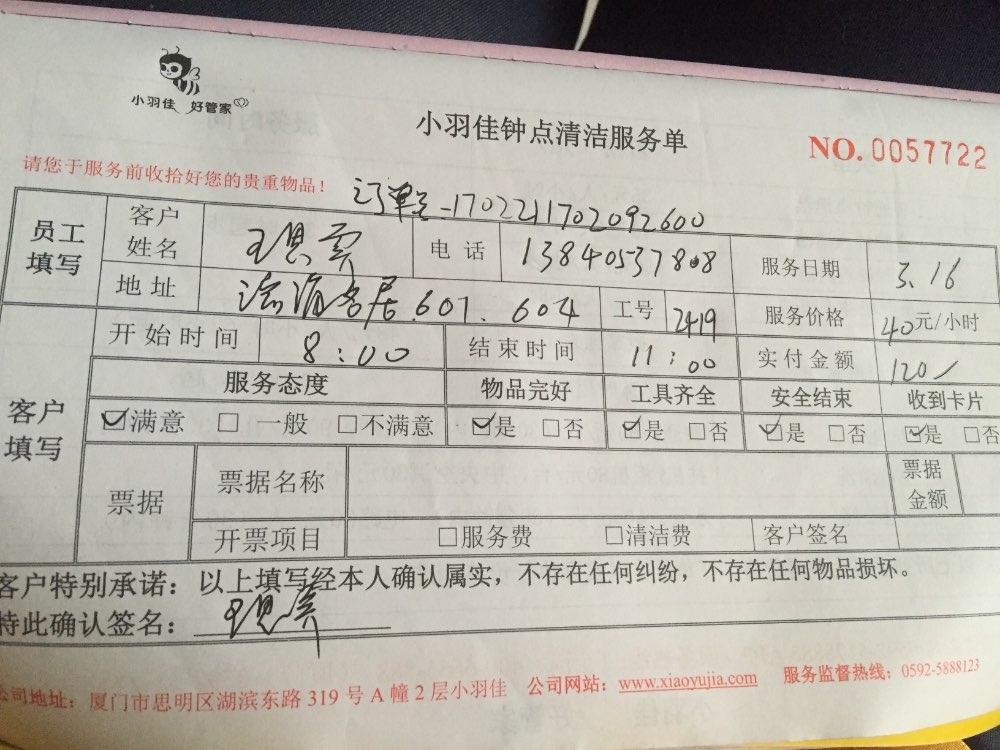 小羽佳 好管家
小羽佳钟点清洁服务单
NO. 0057722
请您于服务前收拾好您的贵重物品！
订单号-1702211702092600
员工填写 客户姓名 电话 13840537808 服务日期 3.16
地址 607. 604 工号 2419 服务价格 40元/小时
客户填写 开始时间 8:00 结束时间 11:00 实付金额 120/
服务态度 物品完好 工具齐全 安全结束 收到卡片
☑满意 □一般 □不满意 ☑是 □否 ☑是 □否 ☑是 □否 ☑是 □否
票据 票据名称 票据金额
开票项目 □服务费 □清洁费 客户签名
客户特别承诺：以上填写经本人确认属实，不存在任何纠纷，不存在任何物品损坏。
特此确认签名：
公司地址：厦门市思明区湖滨东路319号A幢2层小羽佳 公司网站：www.xiaoyujia.com 服务监督热线：0592-5888123